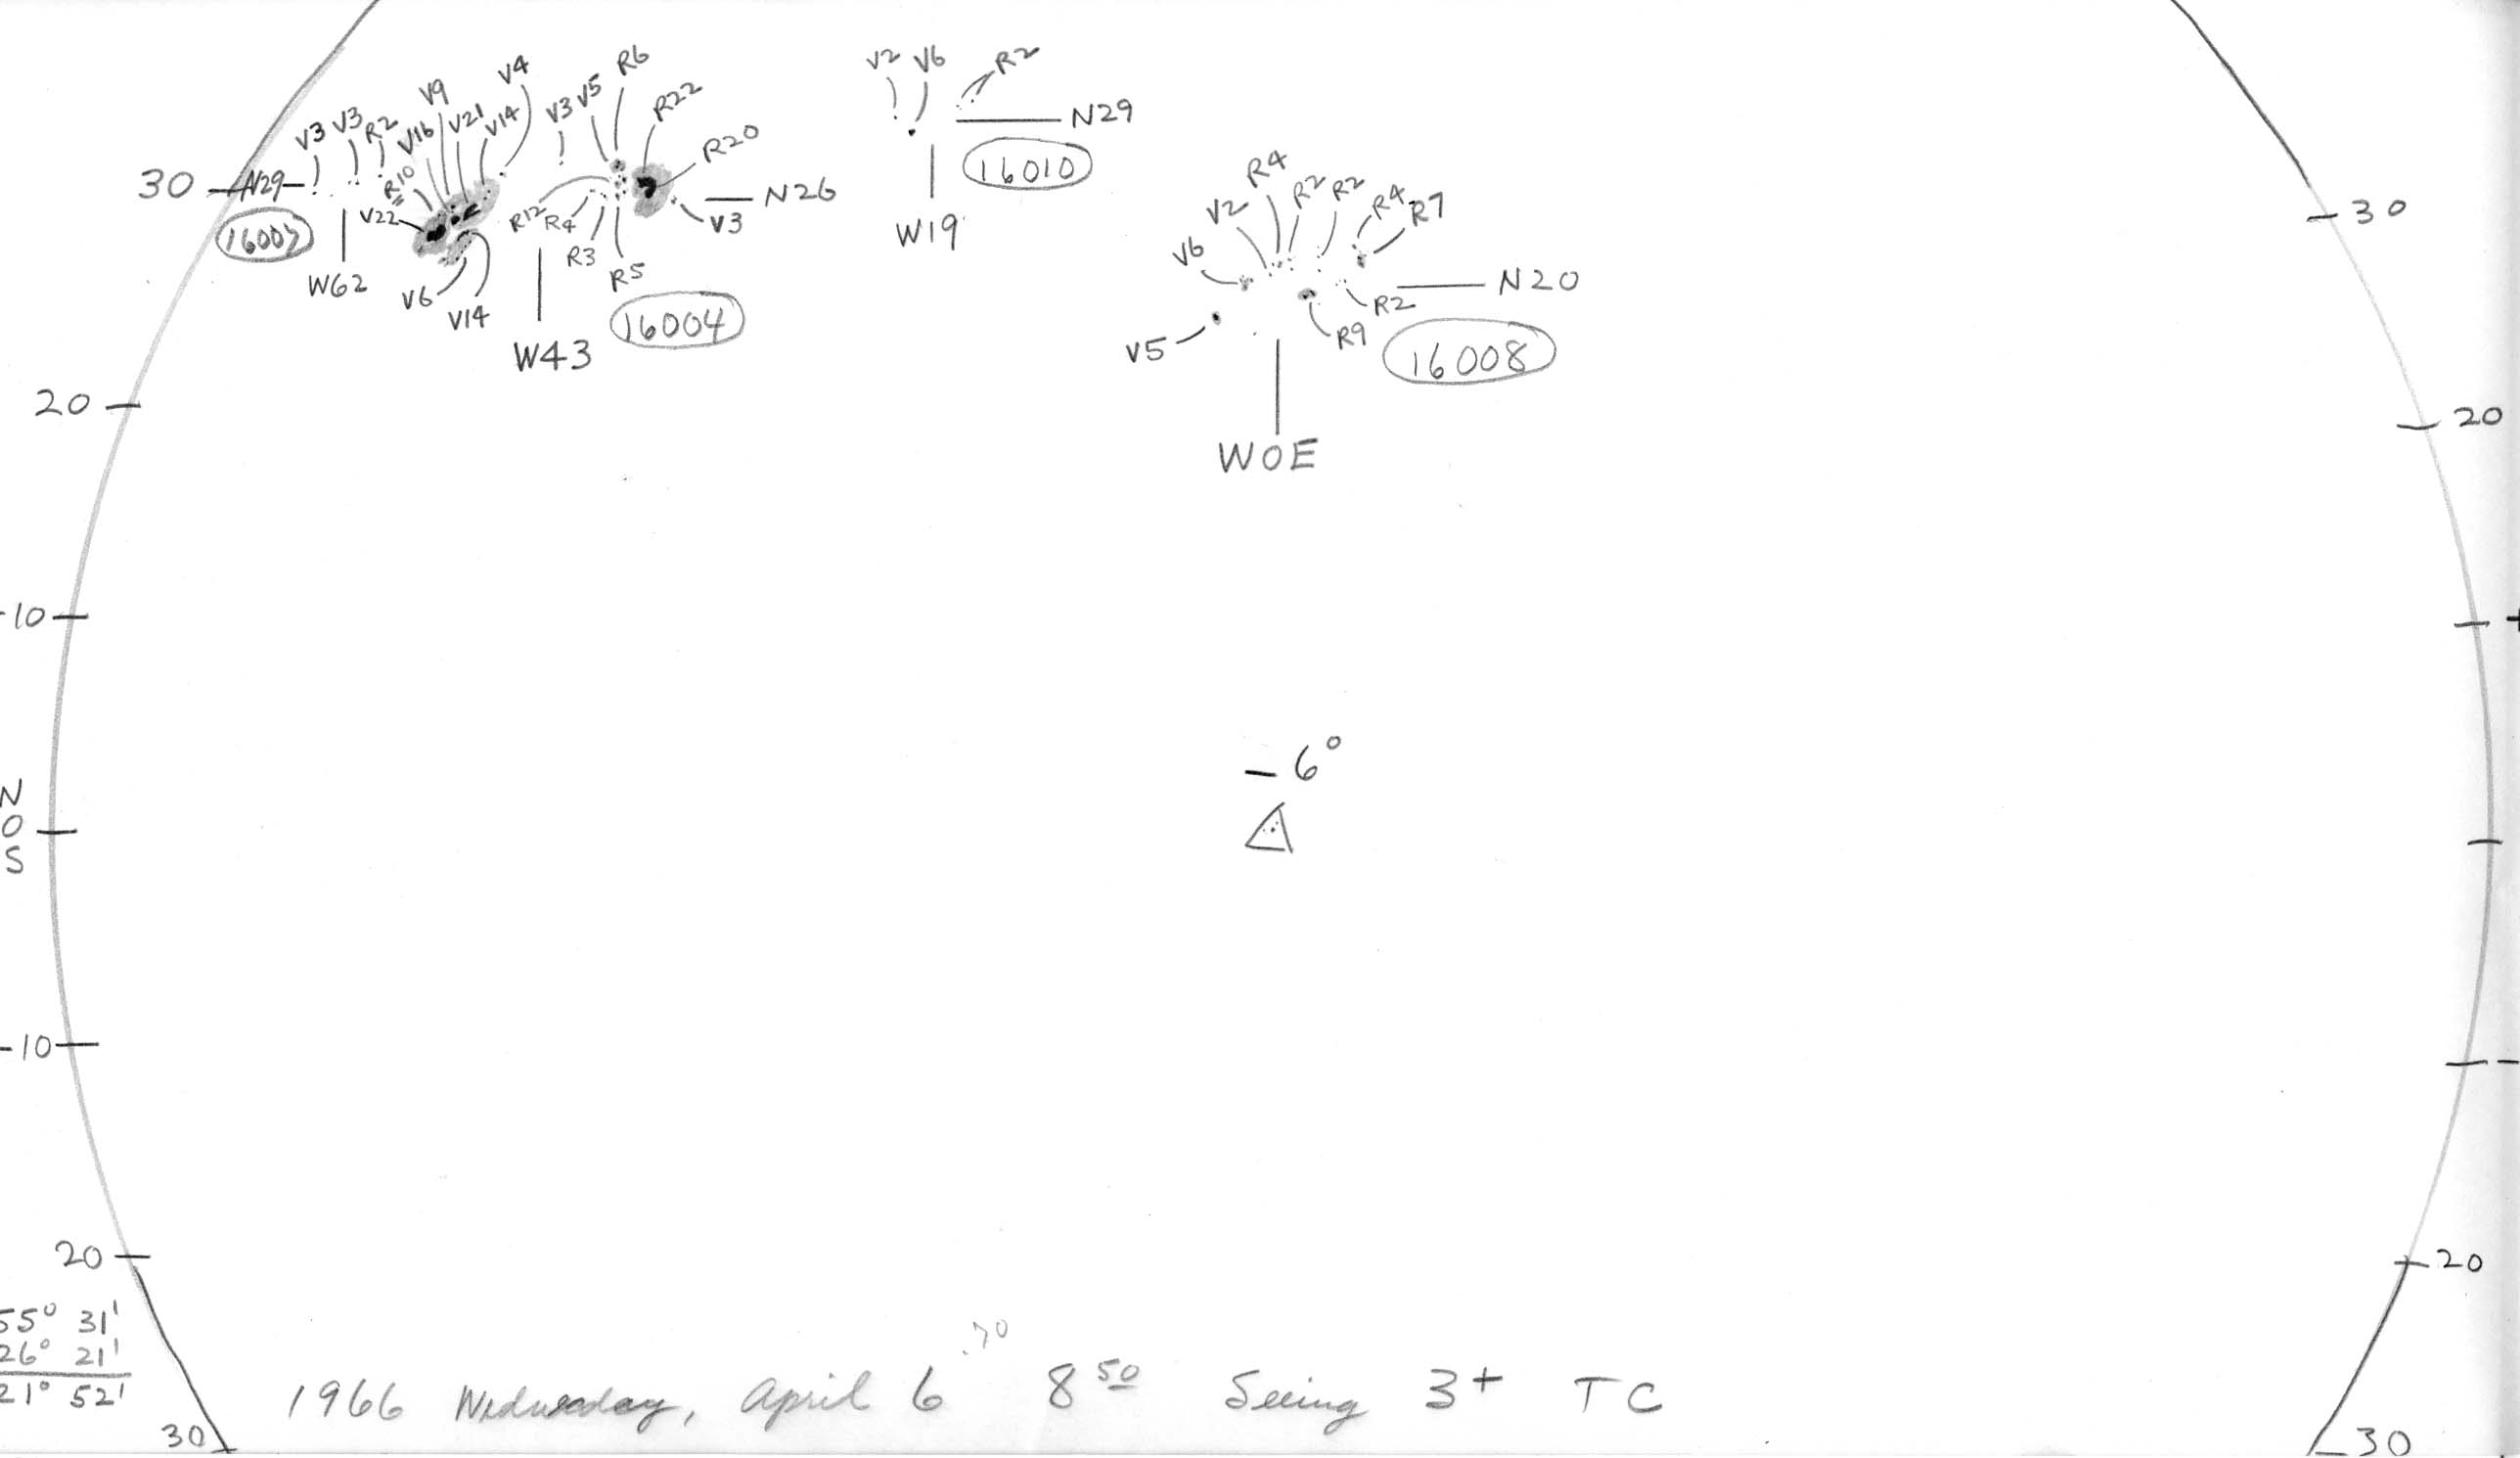 V3 V3 R2 V16 V9 V21 V14 V4
V3 V5 R6 R22 R20
V2 V6 R2
N29
16010
W19
30 N29
R10
V22
W62
V6
V14
R12 R4 R3 R5
V3
N26
16004
W43
R4
V2 R2 R2 R4 R7
V6
N20
R2
R9
V5
16008
W0E
30
20
20
10
-6°
N
0
S
-10
20
20
55° 31'
26° 21'
21° 52'
.70
1966 Wednesday, April 6 8 50 Seeing 3+ TC
30
30